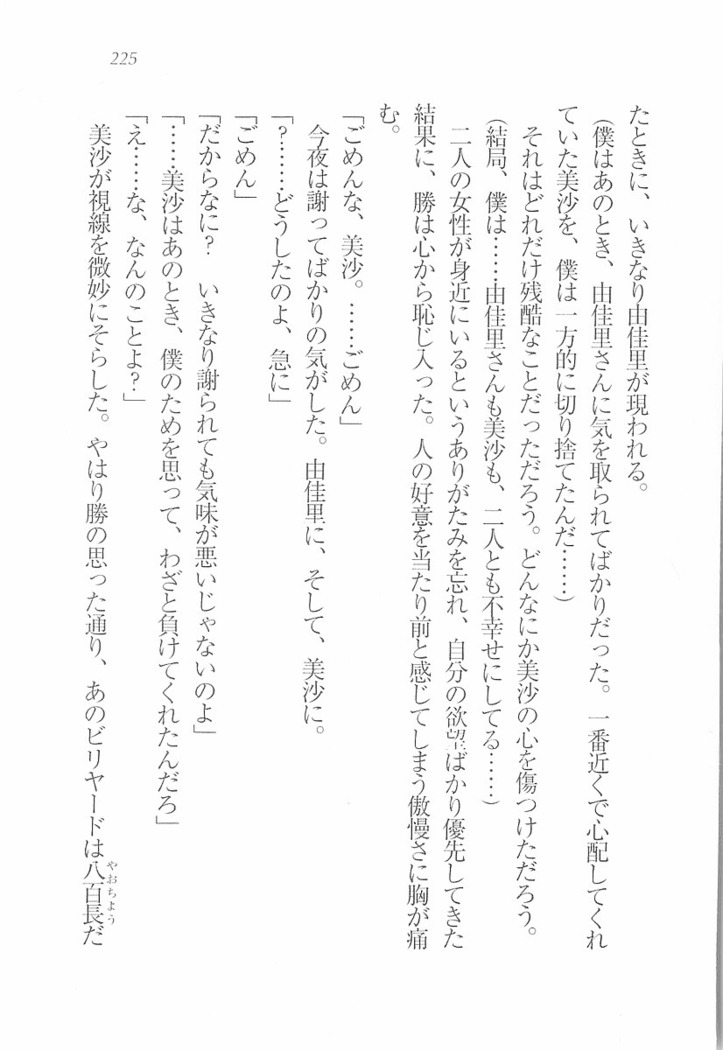 225
たときに、いきなり由佳里が現われる。
（僕はあのとき、由佳里さんに気を取られてばかりだった。一番近くで心配してくれ
ていた美沙を、僕は一方的に切り捨てたんだ……）
それはどれだけ残酷なことだっただろう。どんなにか美沙の心を傷つけただろう。
（結局、僕は……由佳里さんも美沙も、二人とも不幸せにしてる……）
二人の女性が身近にいるというありがたみを忘れ、自分の欲望ばかり優先してきた
結果に、勝は心から恥じ入った。人の好意を当たり前と感じてしまう傲慢さに胸が痛
む。
「ごめんな、美沙。……ごめん」
今夜は謝ってばかりの気がした。由佳里に、そして、美沙に。
「？……どうしたのよ、急に」
「ごめん」
「だからなに？　いきなり謝られても気味が悪いじゃないのよ」
「……美沙はあのとき、僕のためを思って、わざと負けてくれたんだろ」
「え……な、なんのことよ？」
美沙が視線を微妙にそらした。やはり勝の思った通り、あのビリヤードは八百長だ
やおちょう